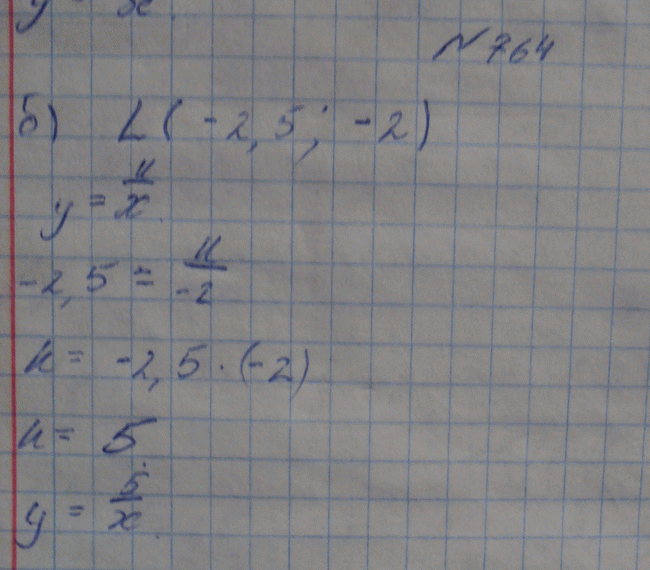 y = x
№ 764
б) L(-2,5; -2)
y = к/x
-2,5 = к/-2
к = -2,5 · (-2)
к = 5
y = 5/x